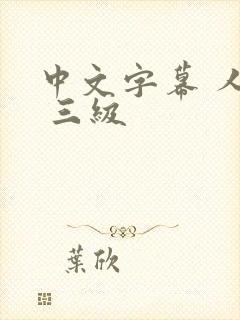 中文字幕 人
三級
葉欣